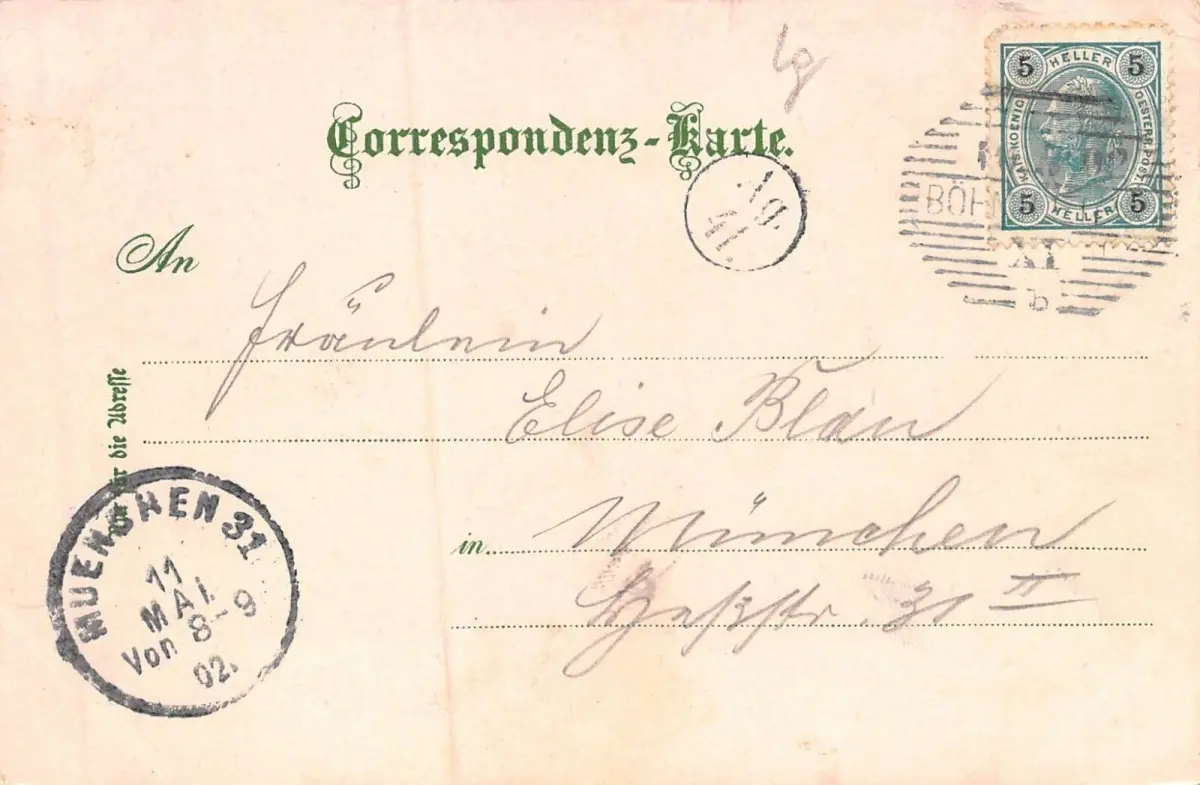 lg
Correspondenz-Karte.
5 HELLER 5
KAIS. KOENIG. OESTERR. POST.
5 HELLER 5
BÖH
XI
b
Ag.
41.
An
Fräulein
Elise Blau
Nur für die Adresse
in München
Heßstr. 31 II
MUENCHEN 31
11
MAI.
Von 8-9
02.